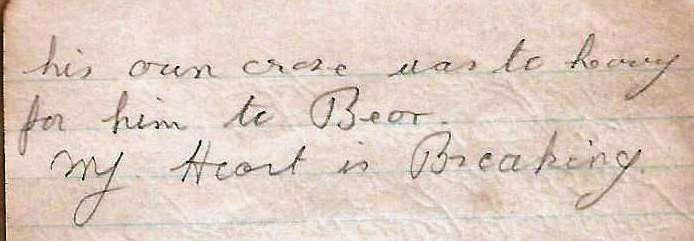 his own crose was to heavy
for him to Bear.
My Heart is Breaking.